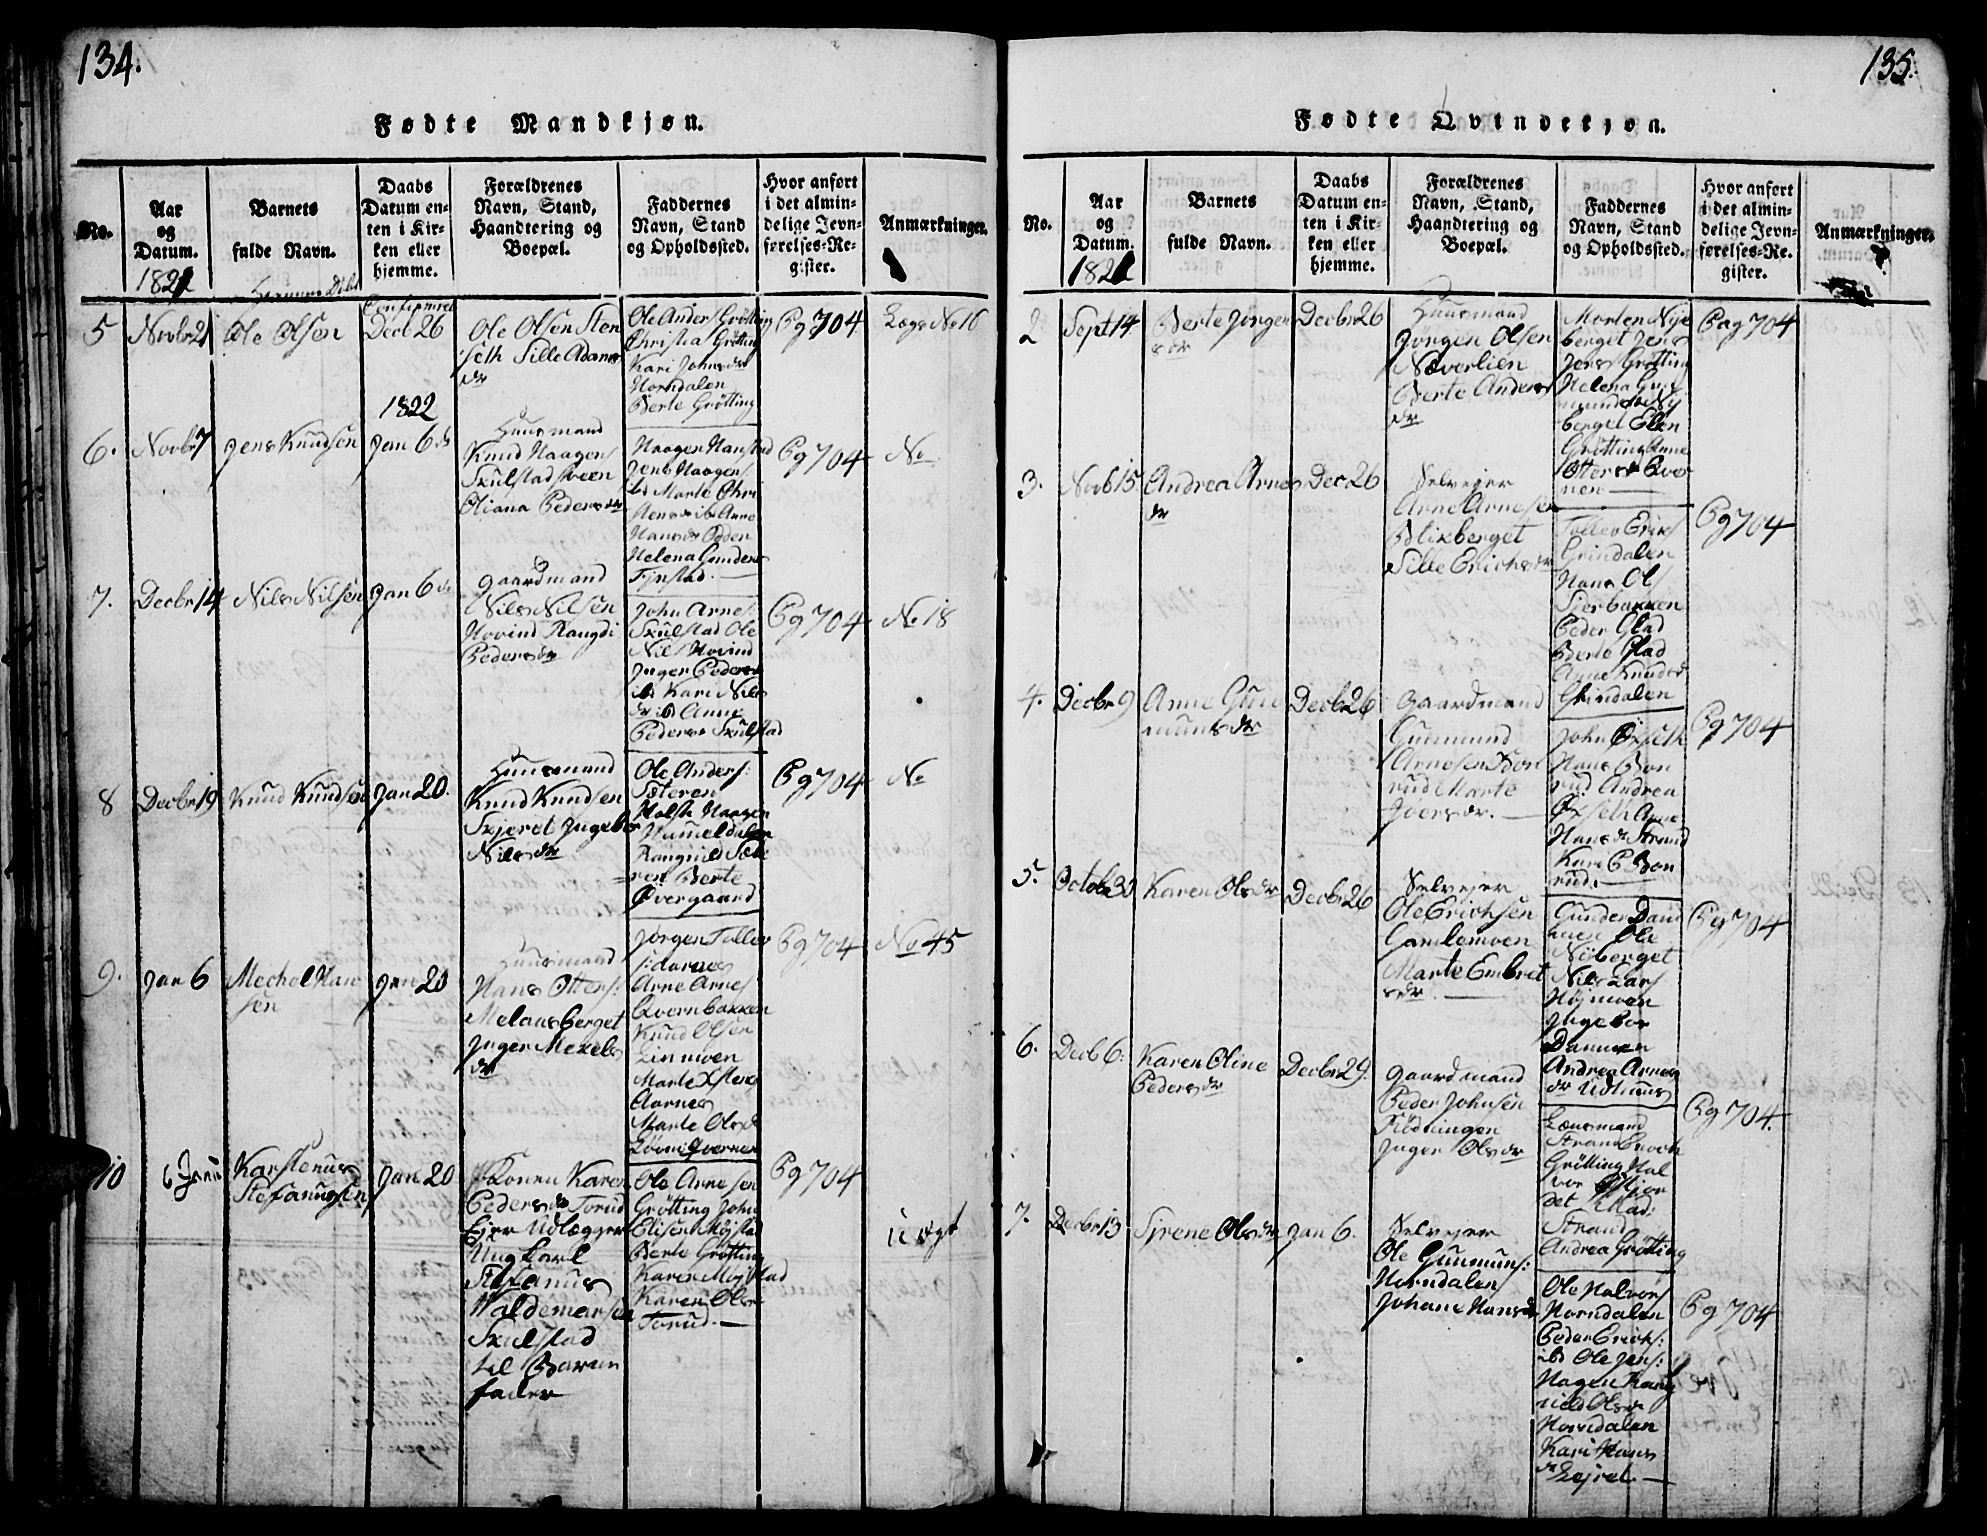 134.
Fødte Mandkjøn.
No.
Aar
og
Datum.
1821
Barnets
fulde Navn.
Daabs
Datum en-
ten i Kir-
ken eller
hjemme.
Forældrenes
Navn, Stand,
Haandtering og
Boepæl.
Faddernes
Navn, Stand
og Opholdssted.
Hvor anført
i det almin-
delige Jevn-
førelses-Re-
gister.
Anmærkninger.
5
Novbr 21
Ole Olsen
Decb 26
Ole Olsen Sten
seth Sille Adams
dr
Ole Anders Grötting
Christia Grötting
Kari Johnsdr
Horndalen
Berte Grötting
Pg 704
Lægs No 16
1822
6.
Novbr 7
Jens Knudsen
Jan 6
Huusmand
Knud Haagens
Skulstadsveen
Oliana Pedersdr
Haagen Hanstad
Jens Haagens
ibd Marte Chri
Hansdr Odden
Helena Gunders
Tynstad.
Pg 704
No
7.
Decbr 14
Nils Nilsen
Jan 6
Gaardmand
Nils Nilsen
Hovind Rangdi
Pedersdr
John Arnes
Skulstad Ole
Nils Hovind
Inger Peders
ib Kari Nils
dr ib Anne
Peders Skulstad
Pg 704
No 18
8
Decbr 19
Knud Knudsen
Jan 20.
Huusmand
Knud Knudsen
Skjeret Ingebor
Nilsdr
Ole Anders:
Sæteren
Holste Haagen
Hummeldalen
Rangnild Sæte
ren Berte
Övergaard
Pg 704
No
9.
Jan 6
Mechel Han
sen
Jan 20
Huusmand
Hans Ottens:
Melaasberget
Inger Mekels
dr
Jørgen Tollev
s: Aarnes
Arne Arnes
Qvernbakken
Knud Olsen
Linmoen
Marte Xstens
Aarnes
Marte Olsd
Pg 704
No 45
10
6 Janu
Karstenus
Stefanusen
Jan 20
Konen Karen
Pedersdr Torud
Ejer Udlægger
Ungkarl
Stefanus
Waldemarsen
Skulstad
til Barnets
fader
Ole Arnesen
Grötting John
Elisen Möjstad
Berte Grötting
Karen Möjstad
Karen Ols
Torud.
Pg 704
uægt
135.
Fødte Qvindekjøn.
No.
Aar
og
Datum.
1821
Barnets
fulde Navn.
Daabs
Datum en-
ten i Kir-
ken eller
hjemme.
Forældrenes
Navn, Stand,
Haandtering og
Boepæl.
Faddernes
Navn, Stand
og Opholdssted.
Hvor anført
i det almin-
delige Jevn-
førelses-Re-
gister.
Anmærkninger.
2
Sept 14
Berte Jörgen
s dr
Decbr 26
Huusmand
Jörgen Olsen
Næverlien
Berte Anders
dr
Morten Nye
berget Jens
Jens Grötting
Helena Gun
munds Ny
berget Ellen
Grötting Anne
Ottersdr Qver
nen
Pag 704
3.
Novb 15
Andrea Arnes
dr
Dec 26
Selvejer
Arne Arnesen
Blixberget
Sille Erichsdr
Tollev Erics
Grindalen
Hans Ols
Sjerbakken
Peder Glad
Berte Glad
Anne Knudsd
Grindalen
Pg 704
4.
Decbr 9
Anne Gun
munsdr
Decbr 26
Gaardmand
Gunmund
Arnesen Bon
rud Marte
Joersdr.
John Öxseth
Hans Bon
rud Andrea
Öxseth Anne
Hansdr Strand
Kari P Bon
rud.
Pg 704
5.
Octobr 30
Karen Olsdr
Decbr 26
Selvejer
Ole Erichsen
Gamlemoen
Marte Embret
sdr.
Gunder Dam
moen Ole
Nöberget
Nils Lars
Höjmoen
Ingebor
Dammen
Andrea Arnes
dr Udhuus
Pg 704
6.
Decb 6:
Karen Oline
Pedersdr
Decbr 29.
Gaardmand
Peder Johnsen
Flödningen
Inger Olsdr
Lensmand
Strand Erich
Grötting Hal
vor
det Mad:
Strand
Andrea Grötting
Pg 704.
7.
Decbr 13
Syrene Olsdr
Jan 6.
Selvejer
Ole Gunmuns:
Horndalen
Johane Hansdr
Ole Halvors
Horndalen
Peder Erichs:
ibd Ole Jens:
Hagen Rang
nild Olsdr
Horndalen
Kari Hans
dr Lejret.
Pg 704